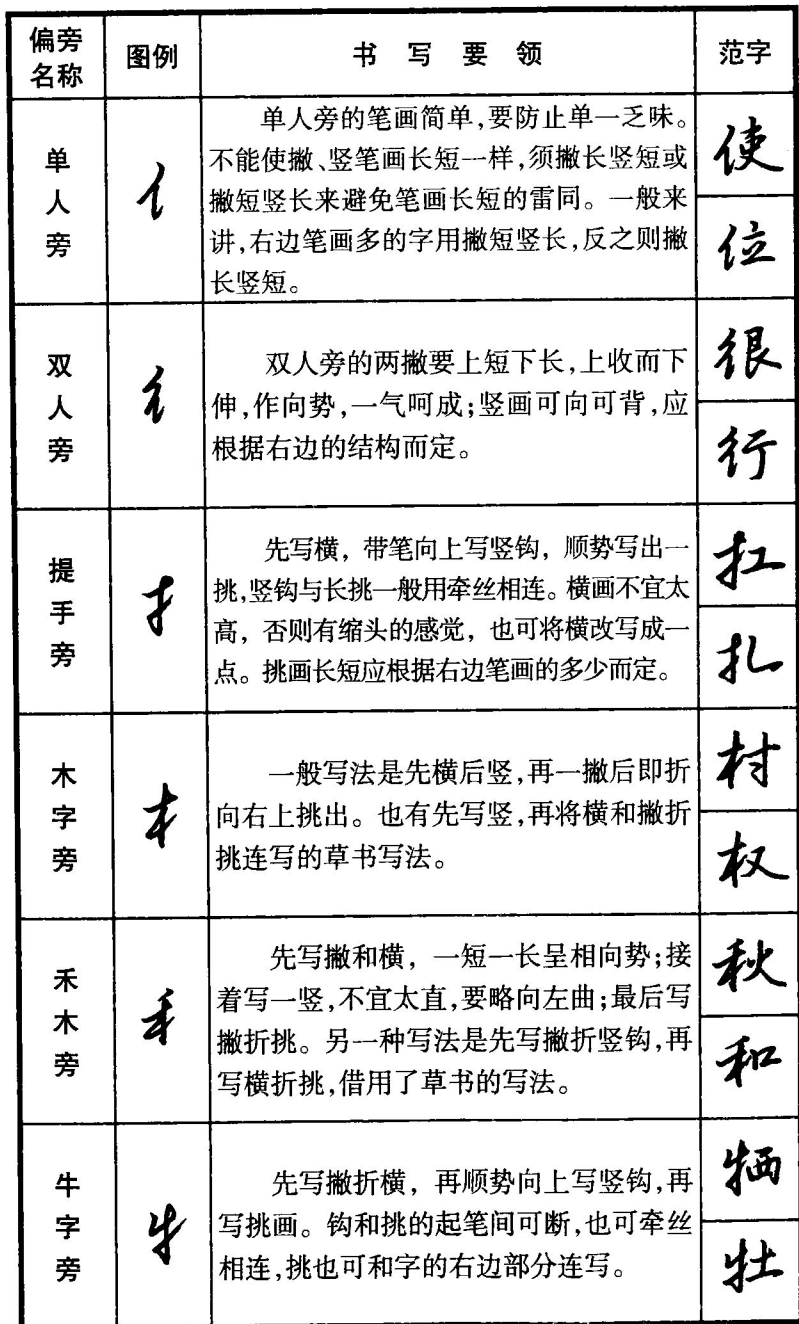 偏旁名称 图例 书写要领 范字
单人旁 亻
单人旁的笔画简单,要防止单一乏味。
不能使撇、竖笔画长短一样,须撇长竖短或
撇短竖长来避免笔画长短的雷同。一般来
讲,右边笔画多的字用撇短竖长,反之则撇
长竖短。
使
位
双人旁 彳
双人旁的两撇要上短下长,上收而下
伸,作向势,一气呵成;竖画可向可背,应
根据右边的结构而定。
很
行
提手旁 扌
先写横,带笔向上写竖钩,顺势写出一
挑,竖钩与长挑一般用牵丝相连。横画不宜太
高,否则有缩头的感觉,也可将横改写成一
点。挑画长短应根据右边笔画的多少而定。
扛
扎
木字旁 木
一般写法是先横后竖,再一撇后即折
向右上挑出。也有先写竖,再将横和撇折
挑连写的草书写法。
村
权
禾木旁 禾
先写撇和横,一短一长呈相向势;接
着写一竖,不宜太直,要略向左曲;最后写
撇折挑。另一种写法是先写撇折竖钩,再
写横折挑,借用了草书的写法。
秋
和
牛字旁 牜
先写撇折横,再顺势向上写竖钩,再
写挑画。钩和挑的起笔间可断,也可牵丝
相连,挑也可和字的右边部分连写。
牺
牡